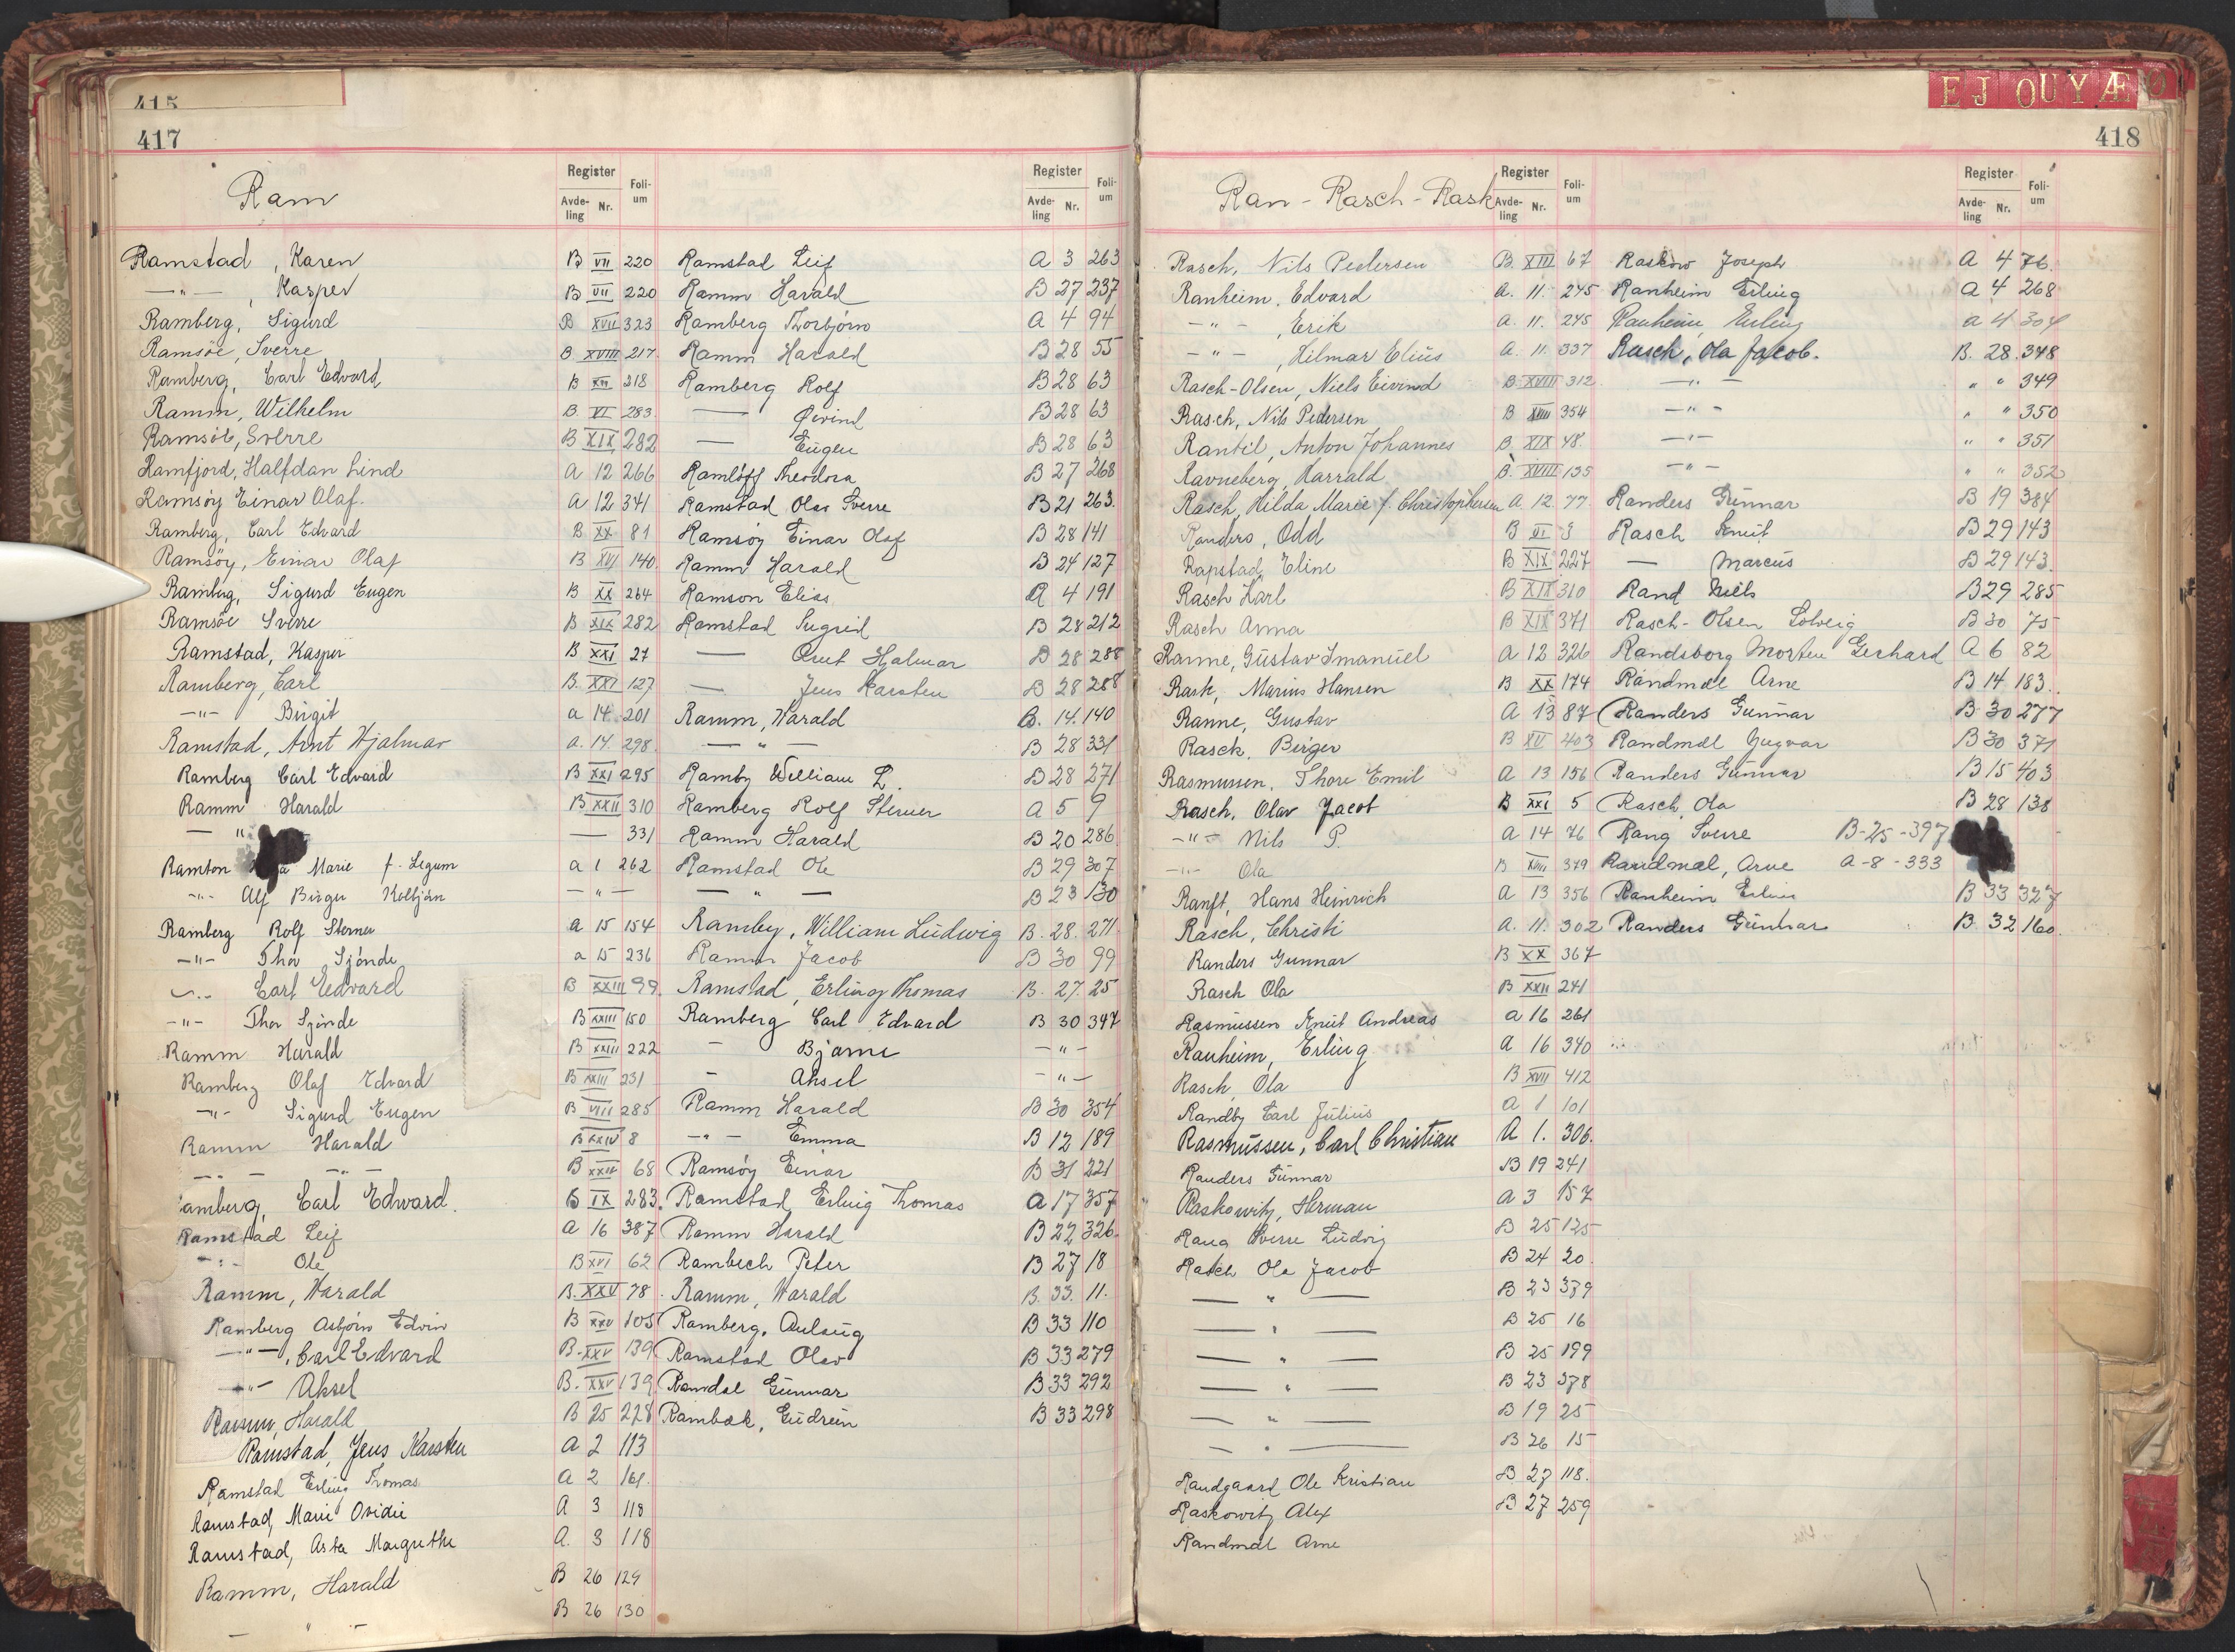 415
417
Ram
Register
Avde-ling Nr. Foli-um
Register
Avde-ling Nr. Foli-um
Ramstad, Karen B VII 220
—"— , Kasper B VII 220
Ramberg, Sigurd B XVII 323
Ramsöe, Sverre B XVIII 217
Ramberg, Carl Edvard B XII 218
Ramm, Wilhelm B. VI 283
Ramsöe, Sverre B XIX 282
Ramfjord, Halfdan Lind A 12 266
Ramsöy Einar Olaf. A 12 341
Ramberg, Carl Edvard B XX 81
Ramsöy, Einar Olaf B XVI 140
Ramberg, Sigurd Eugen B XX 264
Ramsöe Sverre B XIX 282
Ramstad, Kasper B XXI 27
Ramberg, Carl B. XXI 127
—"— Birgit a 14 201
Ramstad, Arnt Hjalmar A. 14. 298.
Ramberg Carl Edvard B XXI 295
Ramm Harald B XXII 310
— " — 331
Ramton Marie f. Legum a 1 262
-"- Alf Birger Kolbjörn —"—
Ramberg Rolf Sterner a 15 154
—"— Thor Sjönde a 15 236
Carl Edvard B XXIII 99
—"— Thor Sjönde B XXIII 150
Ramm Harald B XXIII 222
Ramberg Olaf Edvard B XXIII 231
—"— Sigurd Eugen B VIII 285
Ramm Harald B XXIV 8
—"— —"— B XXIV 68
amberg, Carl Edward. B IX 283
Ramstad Leif A 16 387
—"— Ole B XVI 62
Ramm, Harald B. XXV 78
Ramberg Asbjörn Edvin B XXV 105
—"— , Carl Edvard B. XXV 139
—"— Aksel B. XXV 139
Ramm, Harald B 25 228
Ramstad, Jens Karsten A 2 113
Ramstad Erling Thomas A 2 161.
Ramstad, Marie Ovidie A 3 118
Ramstad, Asta Margrethe A. 3 118
Ramm, Harald B 26 129
— " — B 26 130
Ramstad Leif A 3 263
Ramm Harald B 27 237
Ramberg Thorbjörn A 4 94
Ramm Harald B 28 55
Ramberg Rolf B 28 63
— Öivind B 28 63
— Eugen B 28 63
Ramlöff Theodora B 27 268
Ramstad Olav Sverre B 21 263.
Ramsöy Einar Olaf B 28 141
Ramm Harald B 24 127
Ramson Elias A 4 191
Ramstad Ingrid B 28 212
— Arnt Hjalmar B 28 288
— Jens Karsten B 28 288
Ramm, Harald B. 14. 140
— " — B 28 331
Ramby William L. B 28 271
Ramberg Rolf Sterner A 5 9
Ramm Harald B 20 286
Ramstad Ole B 29 307
— " — B 23 130
Ramby, William Ludwig B. 28. 271
Ramm Jacob B 30 99
Ramstad, Erling Thomas B. 27. 25
Ramberg Carl Edvard B 30 347
- Bjarne —"—
- Aksel —"—
Ramm Harald B 30 354
—"— Emma B 12 189
Ramsöy Einar B 31 221
Ramstad Erling Thomas A 17 357
Ramm Harald B 22 326
Rambech Peter B 27 18
Ramm, Harald B. 33. 11.
Ramberg, Aulaug B 33 110
Ramstad Olav B 33 279
Ramdal Gunnar B 33 292
Rambæk, Gudrun B 33 298
E J O U Y Æ Ø
418
Ran - Rasch - Rask
Register
Avde-ling Nr. Foli-um
Register
Avde-ling Nr. Foli-um
Rasch, Nils Pedersen B. XIII 67
Ranheim, Edvard A. 11. 245
—"— , Erik A. 11. 245
—"— , Hilmar Elius A. 11. 337
Rasch-Olsen, Niels Eivind B. XVIII 312
Rasch, Nils Pedersen B XVIII 354
Rantil, Anton Johannes B. XIX 48.
Ravneberg, Harrald B. XVIII 135
Rasch, Hilda Marie f. Christophersen A 12. 77.
Randers, Odd B VI 3
Rapstad, Eline B XIX 227
Rasch Karl B XIX 310
Rasch Anna B XIX 371
Ranme, Gustav Imanuel A 12 326
Rask, Marius Hansen B XX 174
Ranne, Gustav A 13 87
Rasch, Birger B XV 403
Rasmussen, Thore Emil A 13 156
Rasch, Olav Jacob B XXI 5
—"— Nils P. A 14 76
—"— Ola B XVIII 379
Ranft, Hans Heinrich A 13 356
Rasch, Christi A. 11. 302
Randers Gunnar B XX 367
Rasch Ola B XXII 241
Rasmussen Knut Andreas A 16 261
Ranheim, Erling A 16 340
Rasch, Ola B XVII 412
Randby Carl Julius A 1 101
Rasmussen, Carl Christian A 1. 306.
Randers Gunnar B 19 241
Raskowitz, Herman A 3 157
Rang Sverre Ludvig B 25 125
Rasch Ola Jacob B 24 20
— " — B 23 339
— " — B 25 16
— " — B 25 199
— " — B 23 378
— " — B 19 25
— " — B 26 15
Randgaard Ole Kristian B 27 118.
Raskowitz Alex B 27 259
Randmæl Arne
Raskow Joseph A 4 76.
Ranheim Erling A 4 268
Ranheim, Erling A 4 304
Rasch, Ola Jacob. B. 28. 348
—"— " " 349
—"— " " 350
—"— " " 351
—"— " " 352
Randers Gunnar B 19 384
Rasch Knut B 29 143
— Marcus B 29 143.
Rand Niels B 29 285
Rasch-Olsen Solveig B 30 75
Randsborg Morten Gerhard A 6 82
Randmæl Arne B 14 183.
Randers Gunnar B 30 277
Randmæl Yngvar B 30 371
Randers Gunnar B 15 403
Rasch, Ola B 28 138
Rang Sverre B-25-397
Randmæl, Arne A-8-333
Ranheim Erling B 33 327
Randers Gunnar B. 32 160.